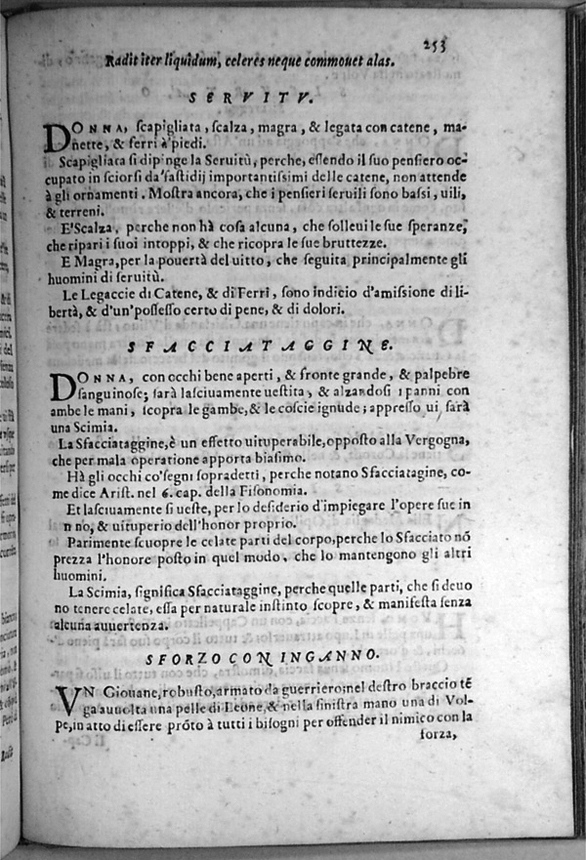 253
Radit iter liquidum, celeres neque commouet alas.
SERVITV.
DONNA, scapigliata, scalza, magra, & legata con catene, ma-
nette, & ferri à piedi.
Scapigliata si dipinge la Seruitù, perche, essendo il suo pensiero oc-
cupato in sciorsi da'fastidij importantissimi delle catene, non attende
à gli ornamenti. Mostra ancora, che i pensieri seruili sono bassi, uili,
& terreni.
E'Scalza, perche non hà cosa alcuna, che solleui le sue speranze,
che ripari i suoi intoppi, & che ricopra le sue bruttezze.
E Magra, per la pouertà del uitto, che seguita principalmente gli
huomini di seruitù.
Le Legaccie di Catene, & di Ferri, sono indicio d'amissione di li-
bertà, & d'un'possesso certo di pene, & di dolori.
SFACCIATAGGINE.
DONNA, con occhi bene aperti, & fronte grande, & palpebre
sanguinose; sarà lasciuamente uestita, & alzandosi i panni con
ambe le mani, scopra le gambe, & le coscie ignude; appresso ui sarà
una Scimia.
La Sfacciataggine, è un effetto uituperabile, opposto alla Vergogna,
che per mala operatione apporta biasimo.
Hà gli occhi co'segni sopradetti, perche notano Sfacciatagine, co-
me dice Arist. nel 6. cap. della Fisonomia.
Et lasciuamente si ueste, per lo desiderio d'impiegare l'opere sue in
& uituperio dell'honor proprio.
Parimente scuopre le celate parti del corpo, perche lo Sfacciato nõ
prezza l'honore posto in quel modo, che lo mantengono gli altri
huomini.
La Scimia, significa Sfacciataggine, perche quelle parti, che si deuo
no tenere celate, essa per naturale instinto scopre, & manifesta senza
alcuna auuertenza.
SFORZO CON INGANNO.
VN Giouane, robusto, armato da guerriero; nel destro braccio tẽ
ga auuolta una pelle di Leone, & nella sinistra mano una di Vol-
pe, in atto di essere prõto à tutti i bisogni per offender il nimico con la
forza,